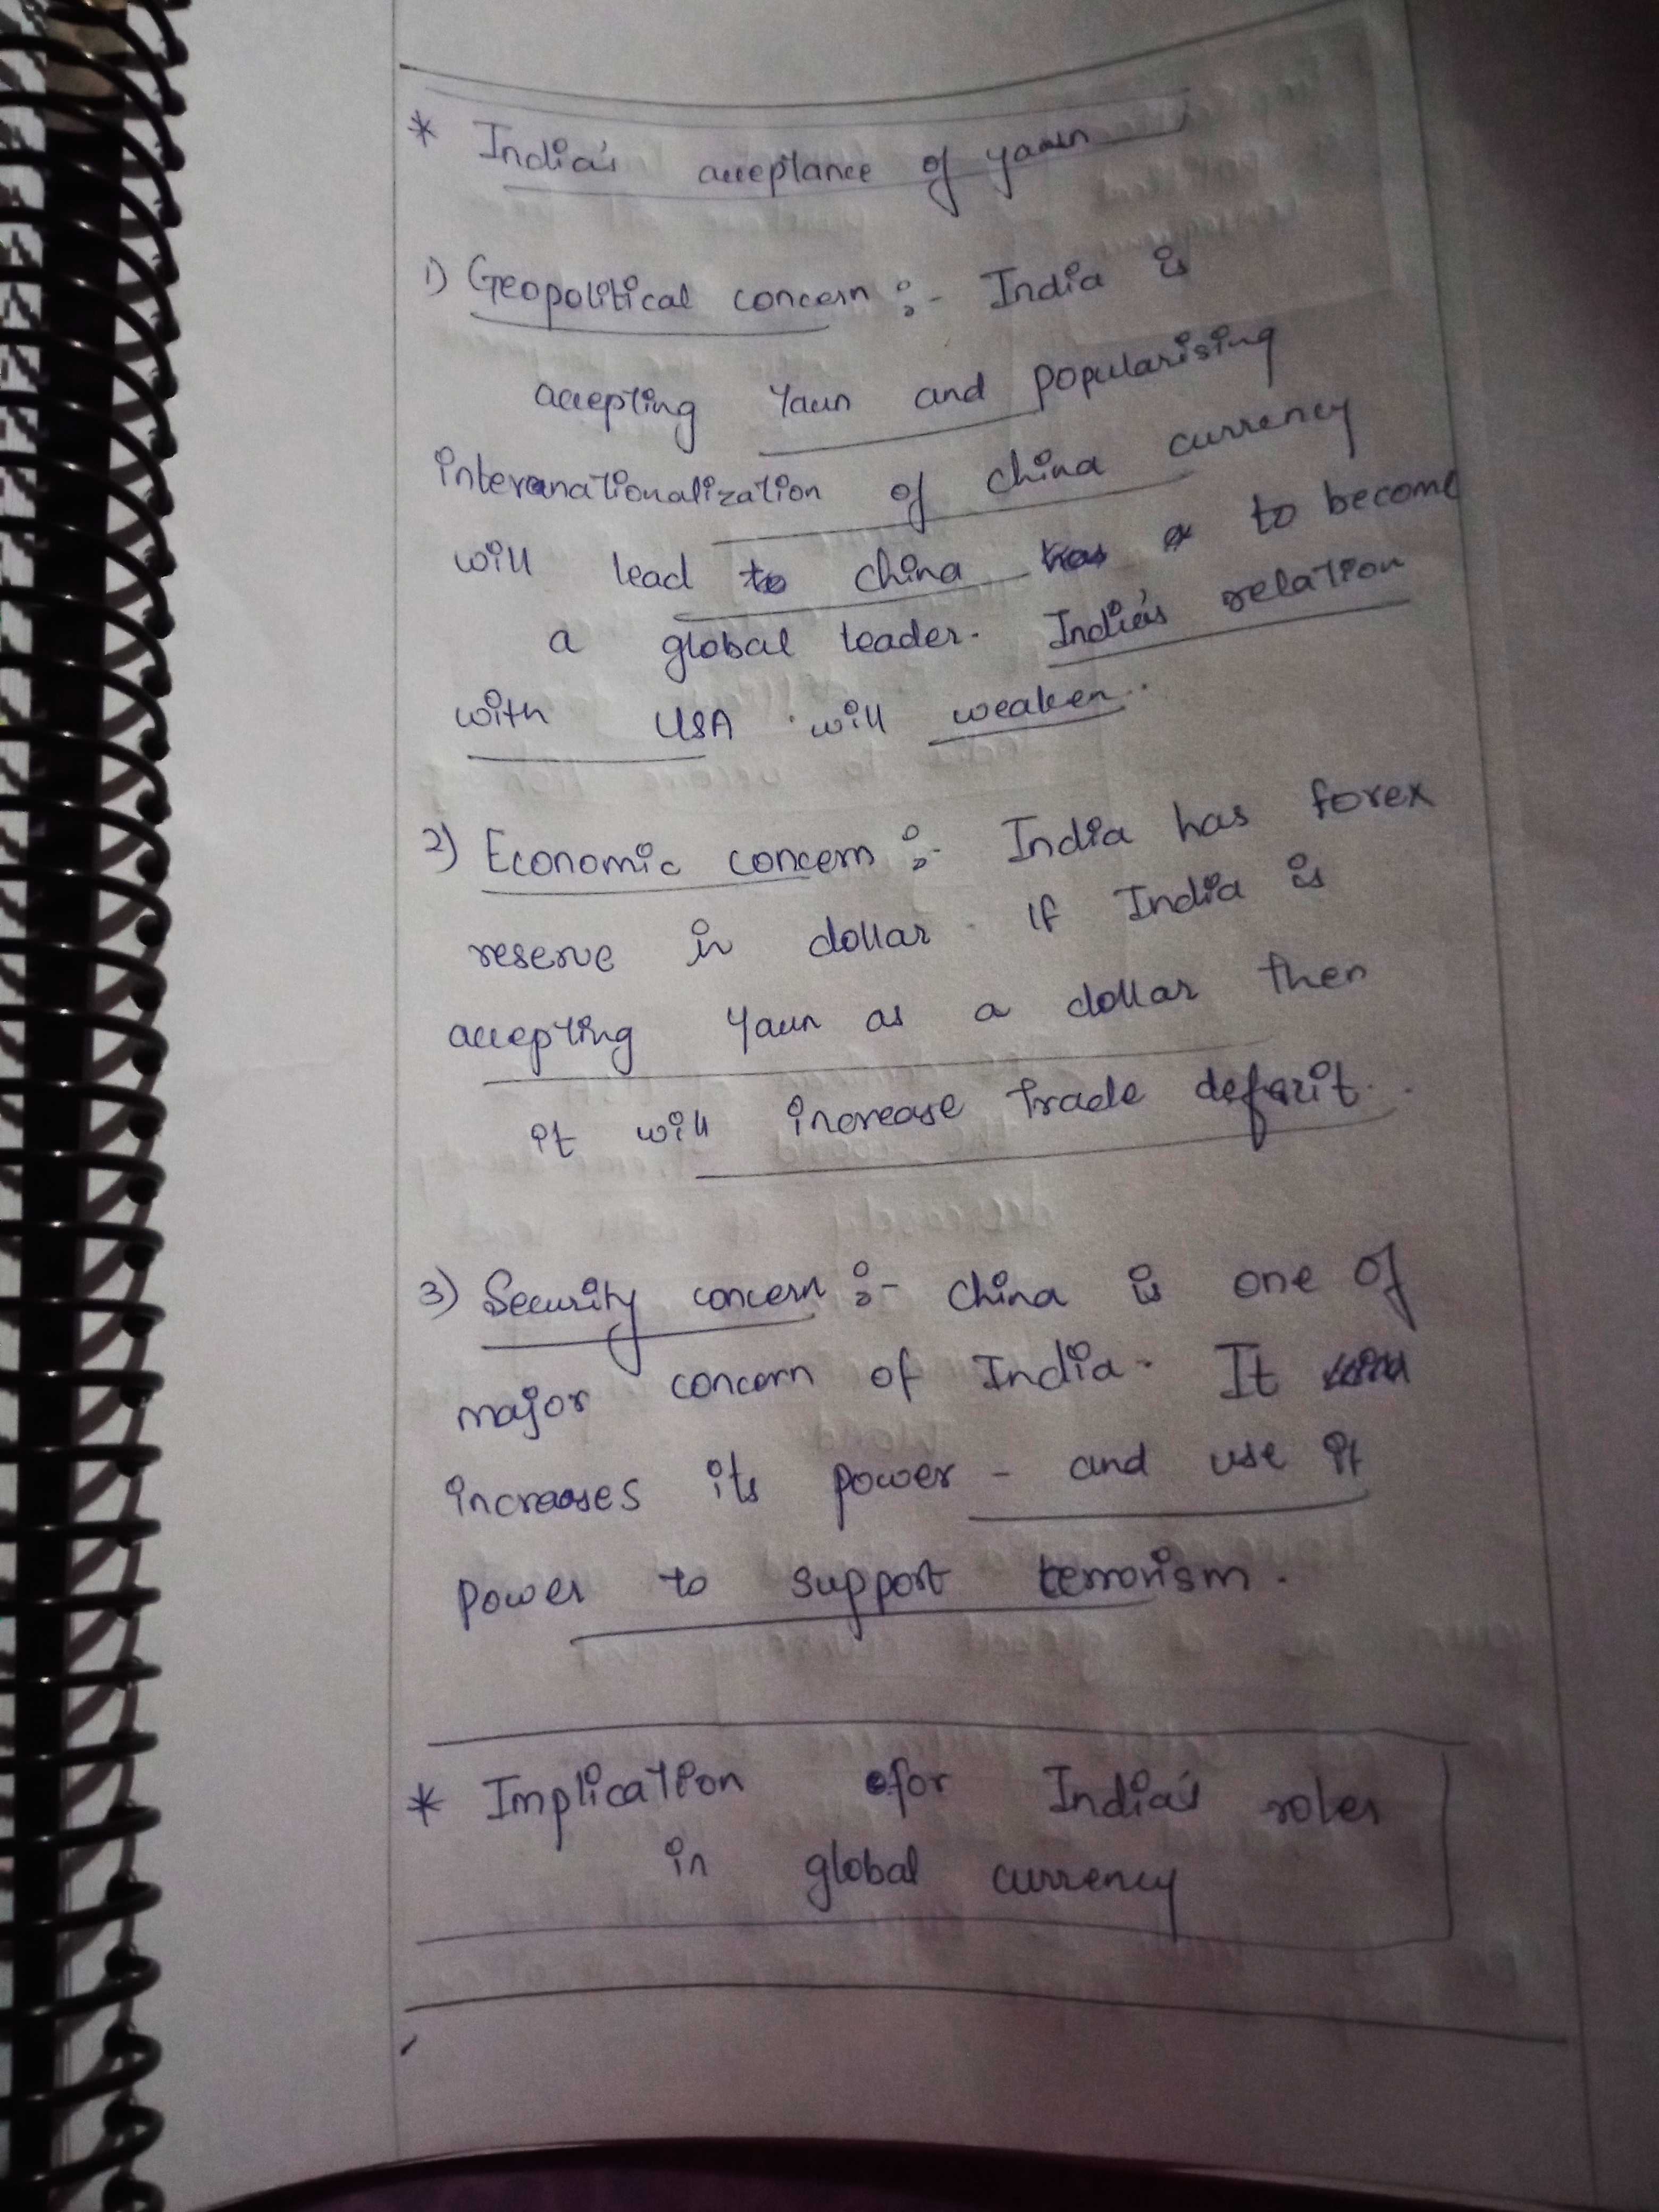 * India's acceptance of yaaun
1) Geopolitical concern :- India is
accepting Yaun and popularising
internationalization of china currency
will lead to china to become
a global leader. India's relation
with USA will weaken.
2) Economic concern :- India has forex
reserve in dollar. If India is
accepting Yaun as a dollar then
it will increase trade deficit.
3) Security concern :- China is one of
major concern of India. It
increases its power - and use it
power to support terrorism.
* Implication for India's roles
in global currency